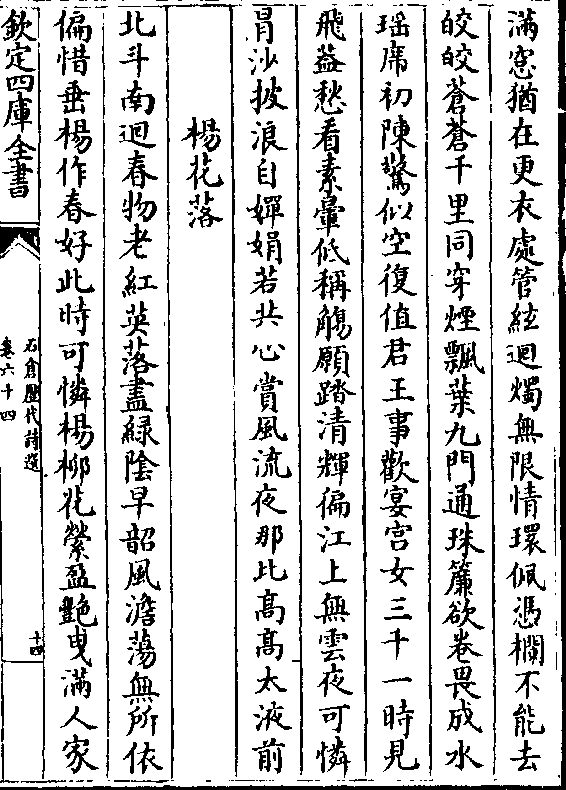 滿窓猶在更衣處管絃迴燭無限情環佩憑欄不能去
皎皎蒼蒼千里同穿煙飄葉九門通珠簾欲卷畏成水
瑶席初陳驚似空復值君王事歡宴宫女三千一時見
飛蓋愁看素暈低稱觴願踏清輝偏江上無雲夜可憐
冐沙披浪自嬋娟若共心賞風流夜那比髙髙太液前
楊花落
北斗南迴春物老紅英落盡緑陰早韶風澹蕩無所依
偏惜垂楊作春好此時可憐楊栁花縈盈艶曳滿人家
欽定四庫全書
石倉歴代詩選
卷六十四
十四